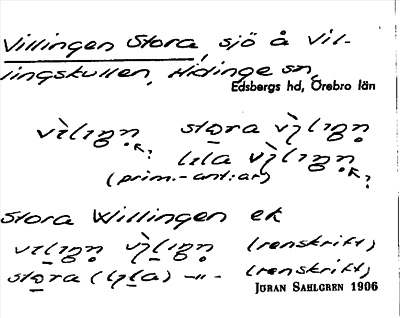 Villingen Stora, sjö å Vil-
lingskullen, Hidinge sn,
Edsbergs hd, Örebro län
vìlıŋn̥ stọra vì̀lıŋn̥
lıla vì̀lıŋn̥
(prim.-ant:ar)
Stora Willingen ek
vılıŋn̥ vìlıŋn̥ (renskrift)
stọra (lıla) –"– (renskrift)
JÖRAN SAHLGREN 1906